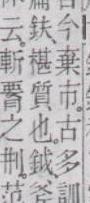 今棄市。古多訓
鈇椹質也。鉞斧
云。斬之刑。范